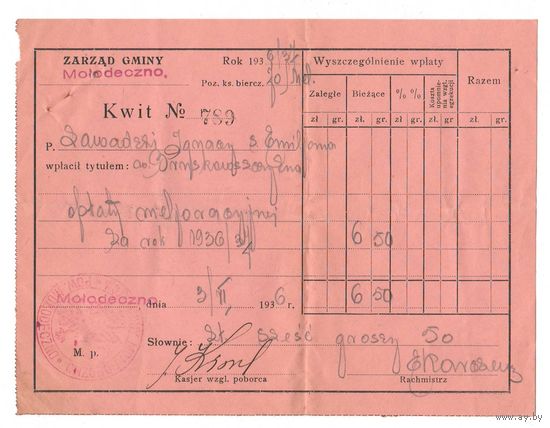 ZARZĄD GMINY
Mołodeczno.
Rok 193
Poz. ks. biercz.
Wyszczególnienie wpłaty
Razem
Zaległe
Bieżące
% %
Koszta upomnienia wzgl. egzekucji
zł. gr. zł. gr. zł gr. zł gr. zł. gr.
Kwit № 789
P. Zawadzki Ignacy s. Emiljana
wpłacił tytułem:
opłaty meljoracyjnej
za rok 1936/37
6 50
Mołodeczno dnia 3/II 1936 r.
6 50
Słownie: zł. sześć groszy 50
M. p.
Kasjer wzgl. poborca
Rachmistrz
www.ay.by